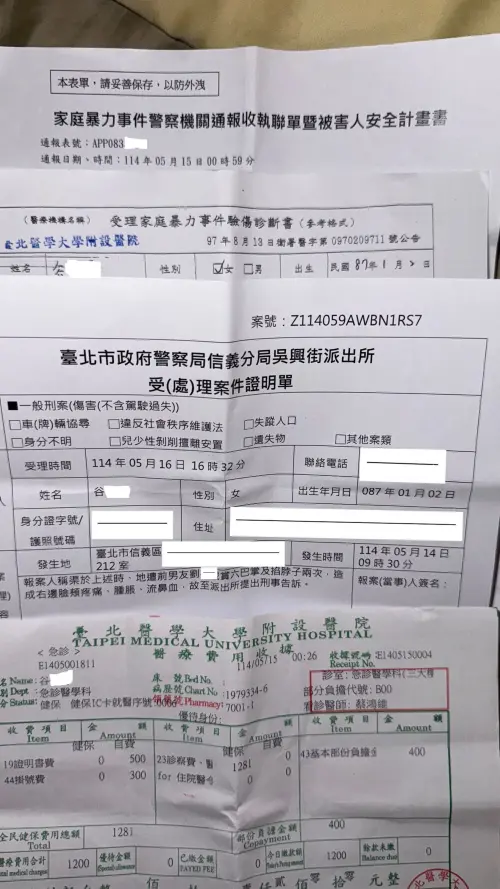 本表單，請妥善保存，以防外洩
家庭暴力事件警察機關通報收執聯單暨被害人安全計畫書
通報表號：APP083
通報日期、時間：114 年 05 月 15 日 00 時 59 分
（醫療機構名稱） 受理家庭暴力事件驗傷診斷書（參考格式）
臺北醫學大學附設醫院 97 年 8 月 13 日衛署醫字第 0970209711 號公告
姓名 谷 性別 ☑女 □男 出生 民國 87年 1月 2日
案號：Z114059AWBN1RS7
臺北市政府警察局信義分局吳興街派出所
受(處)理案件證明單
■一般刑案(傷害(不含駕駛過失))
□車(牌)輛協尋 □違反社會秩序維護法 □失蹤人口
□身分不明 □兒少性剝削擅離安置 □遺失物 □其他案類
受理時間 114 年 05 月 16 日 16 時 32 分 聯絡電話
姓名 谷 性別 女 出生年月日 087 年 01 月 02 日
身分證字號/護照號碼 住址
發生地 臺北市信義區 212 室 發生時間 114 年 05 月 14 日 09 時 30 分
報案人稱渠於上述時、地遭前男友劉 賞六巴掌及掐脖子兩次，造
成右邊臉頰疼痛、腫脹、流鼻血，故至派出所提出刑事告訴。
報案(當事)人簽名：
臺北醫學大學附設醫院
TAIPEI MEDICAL UNIVERSITY HOSPITAL
<急診> 醫療費用收據
E1405001811 114/05/15 00:26 收據號碼:E1405150004
Receipt No.
Name:谷 床號 Bed No.: 診室:急診醫學科(三大
別 Dept:急診醫學科 病歷號 Chart No:1979334-6 部分負擔代號:B00
Status: 健保 健保IC卡就醫序號:0006 領藥號 Pharmacy:7001-1 看診醫師:蔡鴻維
優待身份:
收費項目 Item 金額 Amount 收費項目 Item 金額 Amount 收費項目 Item 金額 Amount
健保 自費 健保 自費
19證明書費 0 500 23診察費、醫 1281 0 43基本部份負擔 400
44掛號費 0 300 for 住院醫 0 0
全民健保費用總額 Total 1281 部份負擔金額 Copayment 400
醫療費用合計 Total medical charges 1200 優待金額 0 已繳金額 PAYED FEE 0 今日繳款額 1200 餘款未繳 Balance due 0